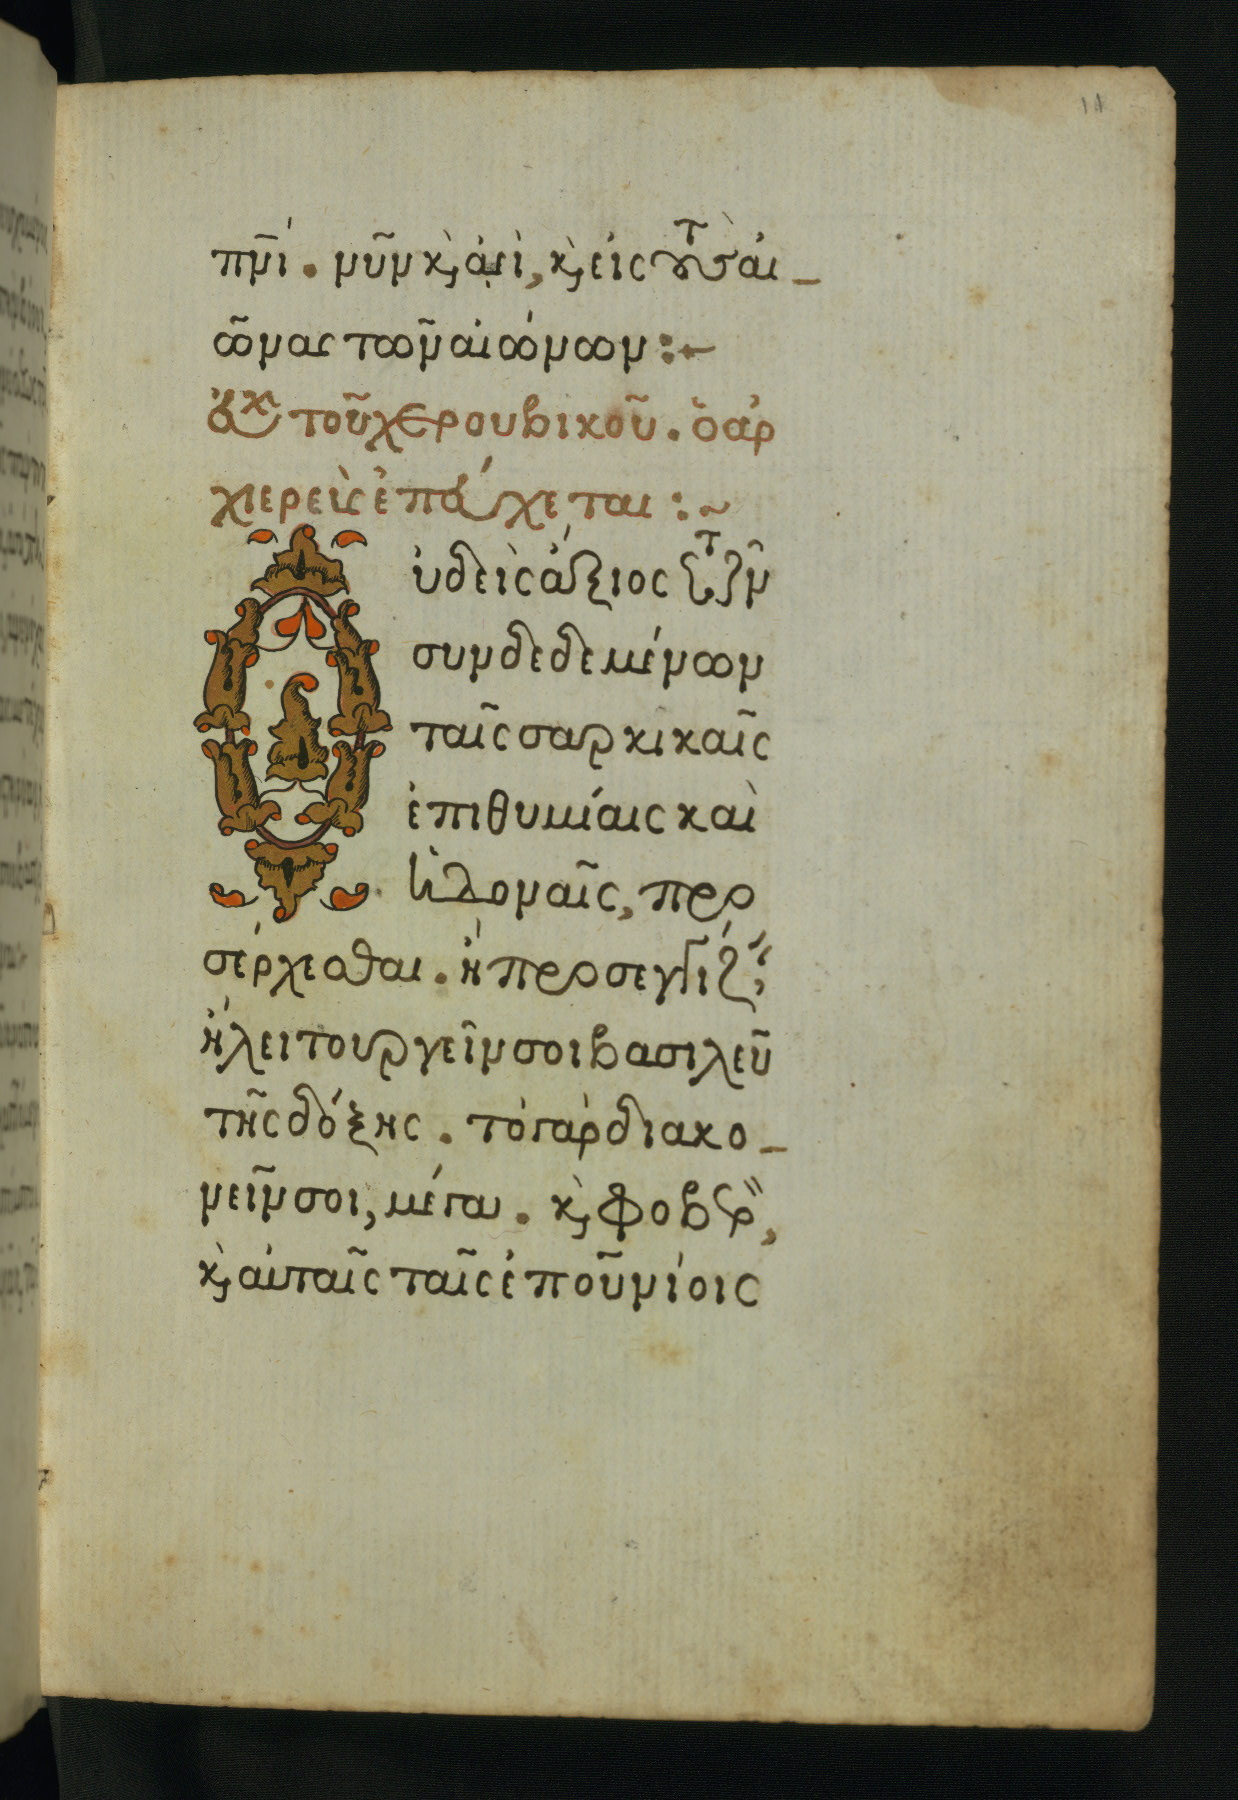 11
πνι. νῦν κ̀ ἀεὶ, κ̀ εἰς τοὺς αἰ_
ῶνας τῶν αἰώνων :-
εὐχ τοῦ χερουβικοῦ. ὃ ἀρ
χιερεὺς ἐπεύχεται :~
Οὐδεὶς ἄξιος τῶν
συνδεδεμένων
ταῖς σαρκικαῖς
ἐπιθυμίαις καὶ
ἡδοναῖς, προ
σέρχεσθαι. ἢ προσεγγίζ
ἢ λειτουργεῖν σοι βασιλεῦ
τῆς δόξης. τὸ γὰρ διακο_
νεῖν σοι, μέγα. κ̀ φοβερ,
κ̀ αὐταῖς ταῖς ἐπουρανίοις